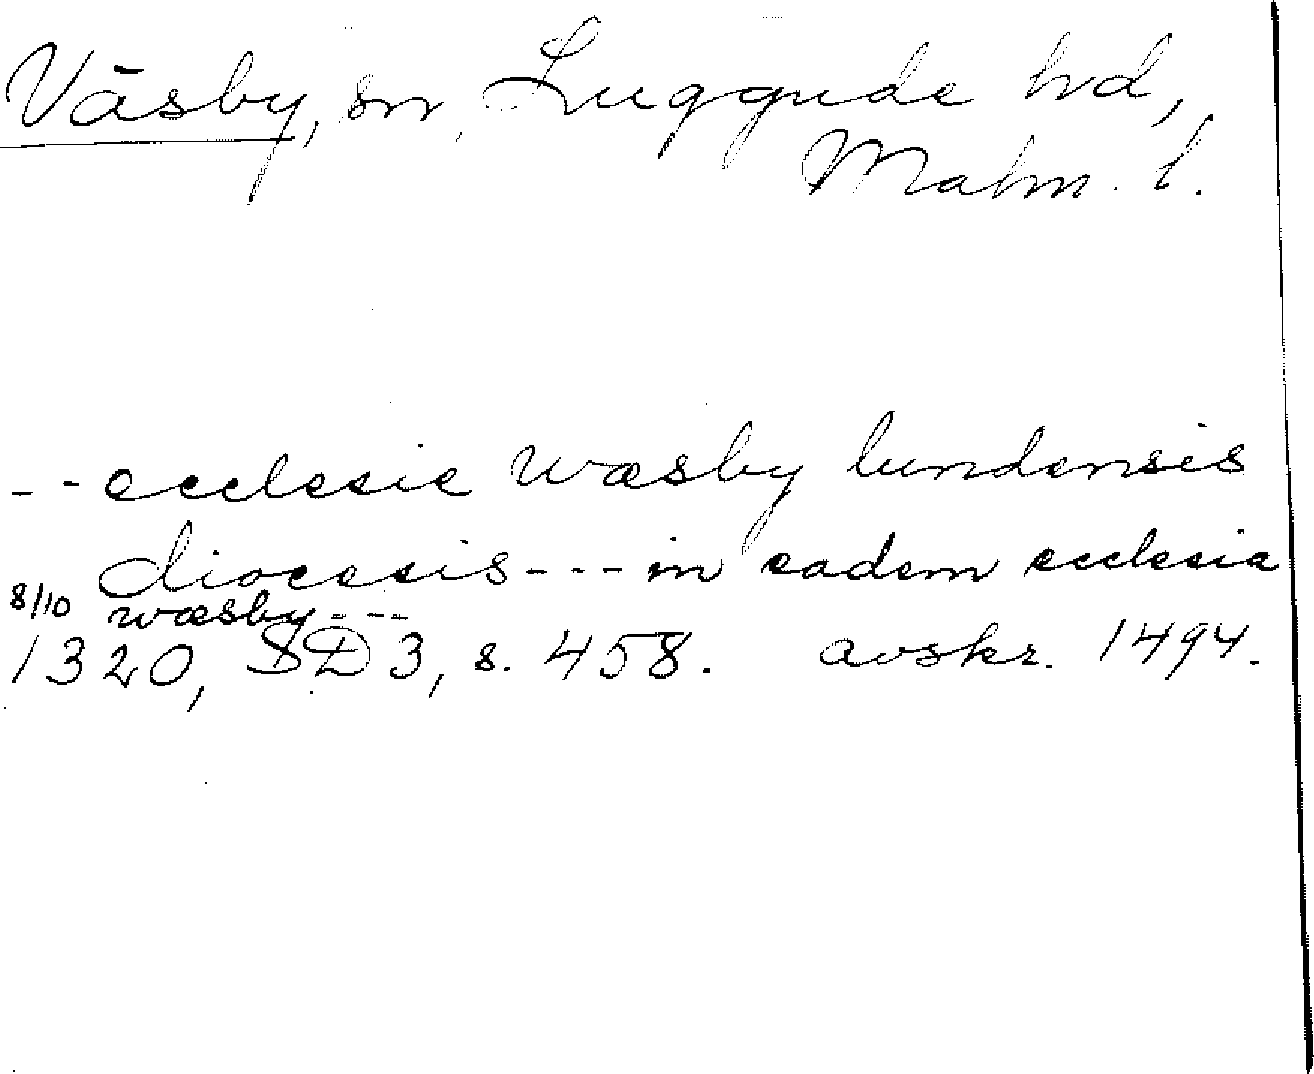 Väsby, sn, Luggude hd,
Malm. l.
-- ecclesie wæsby lundensis
diocesis --- in eadem ecclesia
8/10 wæsby ---
1320, SD 3, s. 458. avskr. 1494.